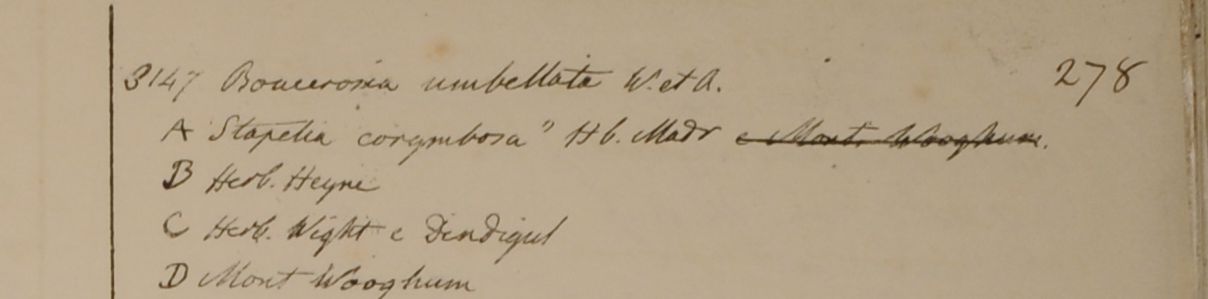 3147 Boucerosia umbellata W. et A. 278
A Stapelia corymbosa" Hb. Madr e Mont. Wooghum.
B Herb. Heyne
C Herb. Wight e Dindigul
D Mont Wooghum